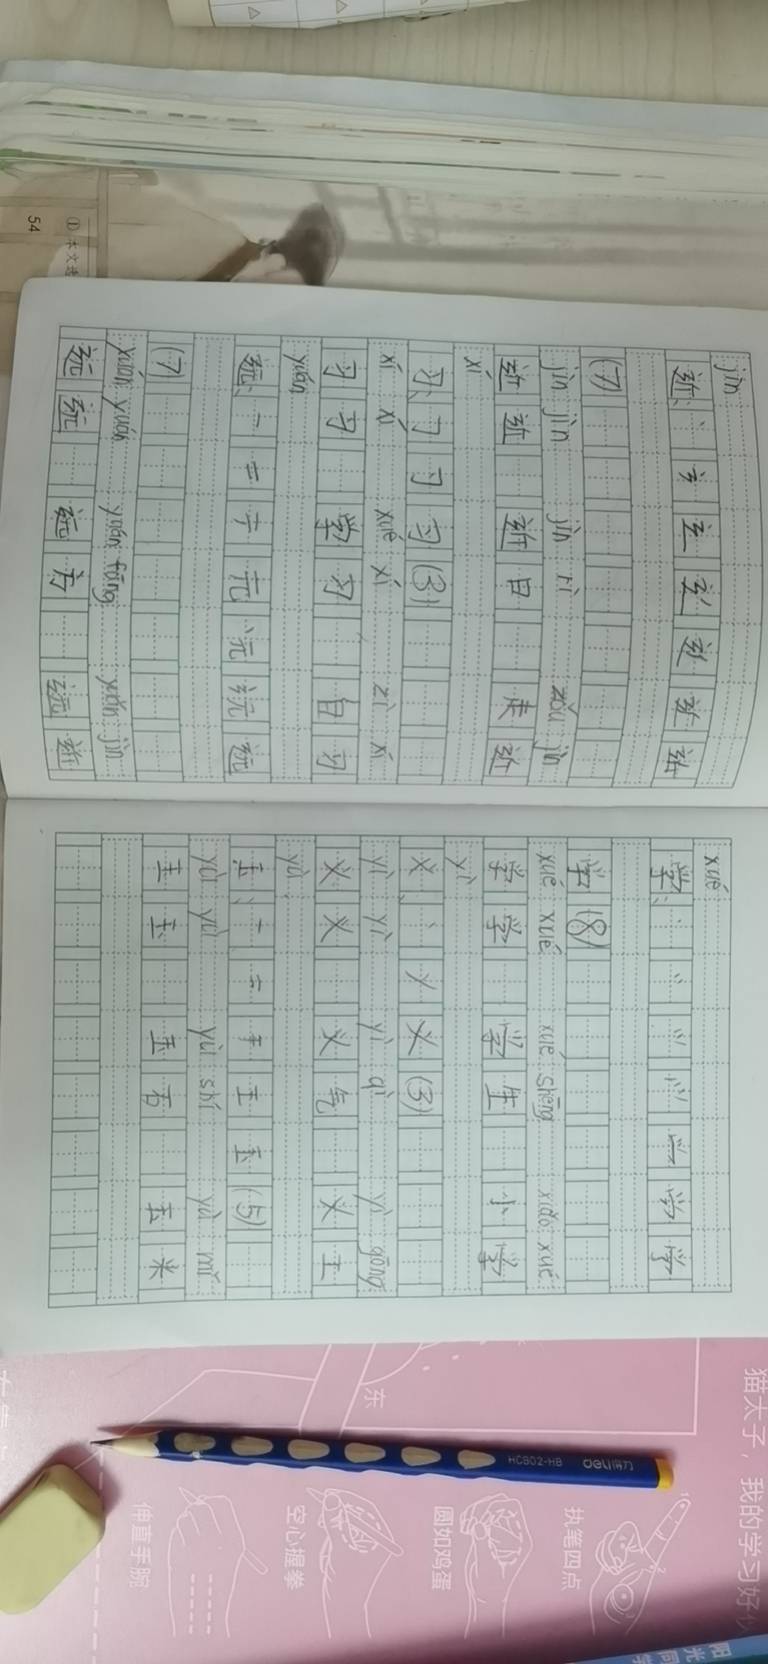 jìn
近:
(7)
jìn jìn jìn rì zǒu jìn
近 近 近日 走近
xí
习: 习 (3)
xí xí xué xí zì xí
习 习 学习 自习
yuǎn
远: 一 二 テ 元 远
(7)
yuǎn yuǎn yuǎn fāng yuǎn jìn
远 远 远方 远近
xué
学:
学 (8)
xué xué xué shēng xiǎo xué
学 学 学生 小学
yì
义: 丶 义 (3)
yì yì yì qì yì gōng
义 义 义气 义工
yù
玉: 一 二 王 玉 (5)
yù yù yù shí yù mǐ
玉 玉 玉石 玉米
54
① 本文
东
HC802-HB deli得力
猫太子,我的学习好
执笔四点
圆如鸡蛋
空心握拳
伸直手腕
阳光同学